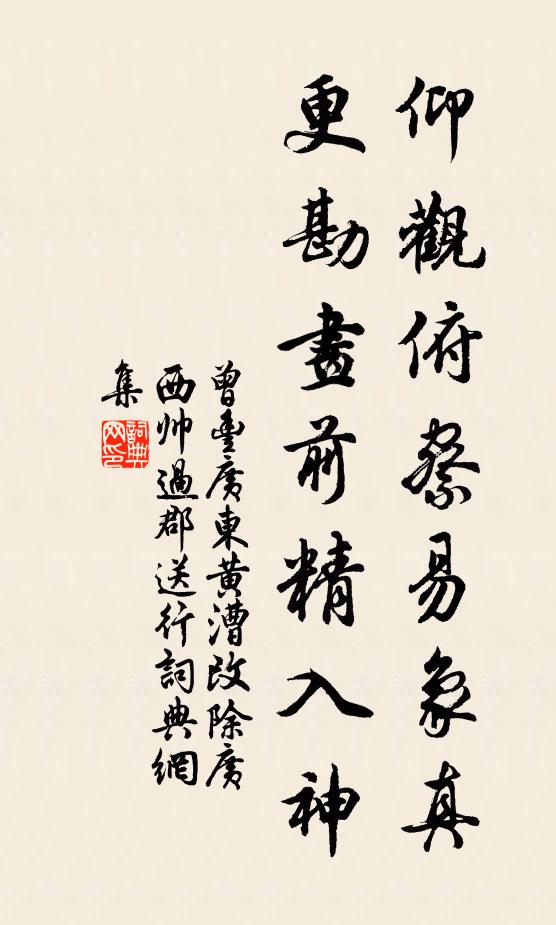 仰觀俯察易象真
更勘畫前精入神
曾豐廣東黃漕改除廣
西帅過郡送行詞典網
集
詞典
网印